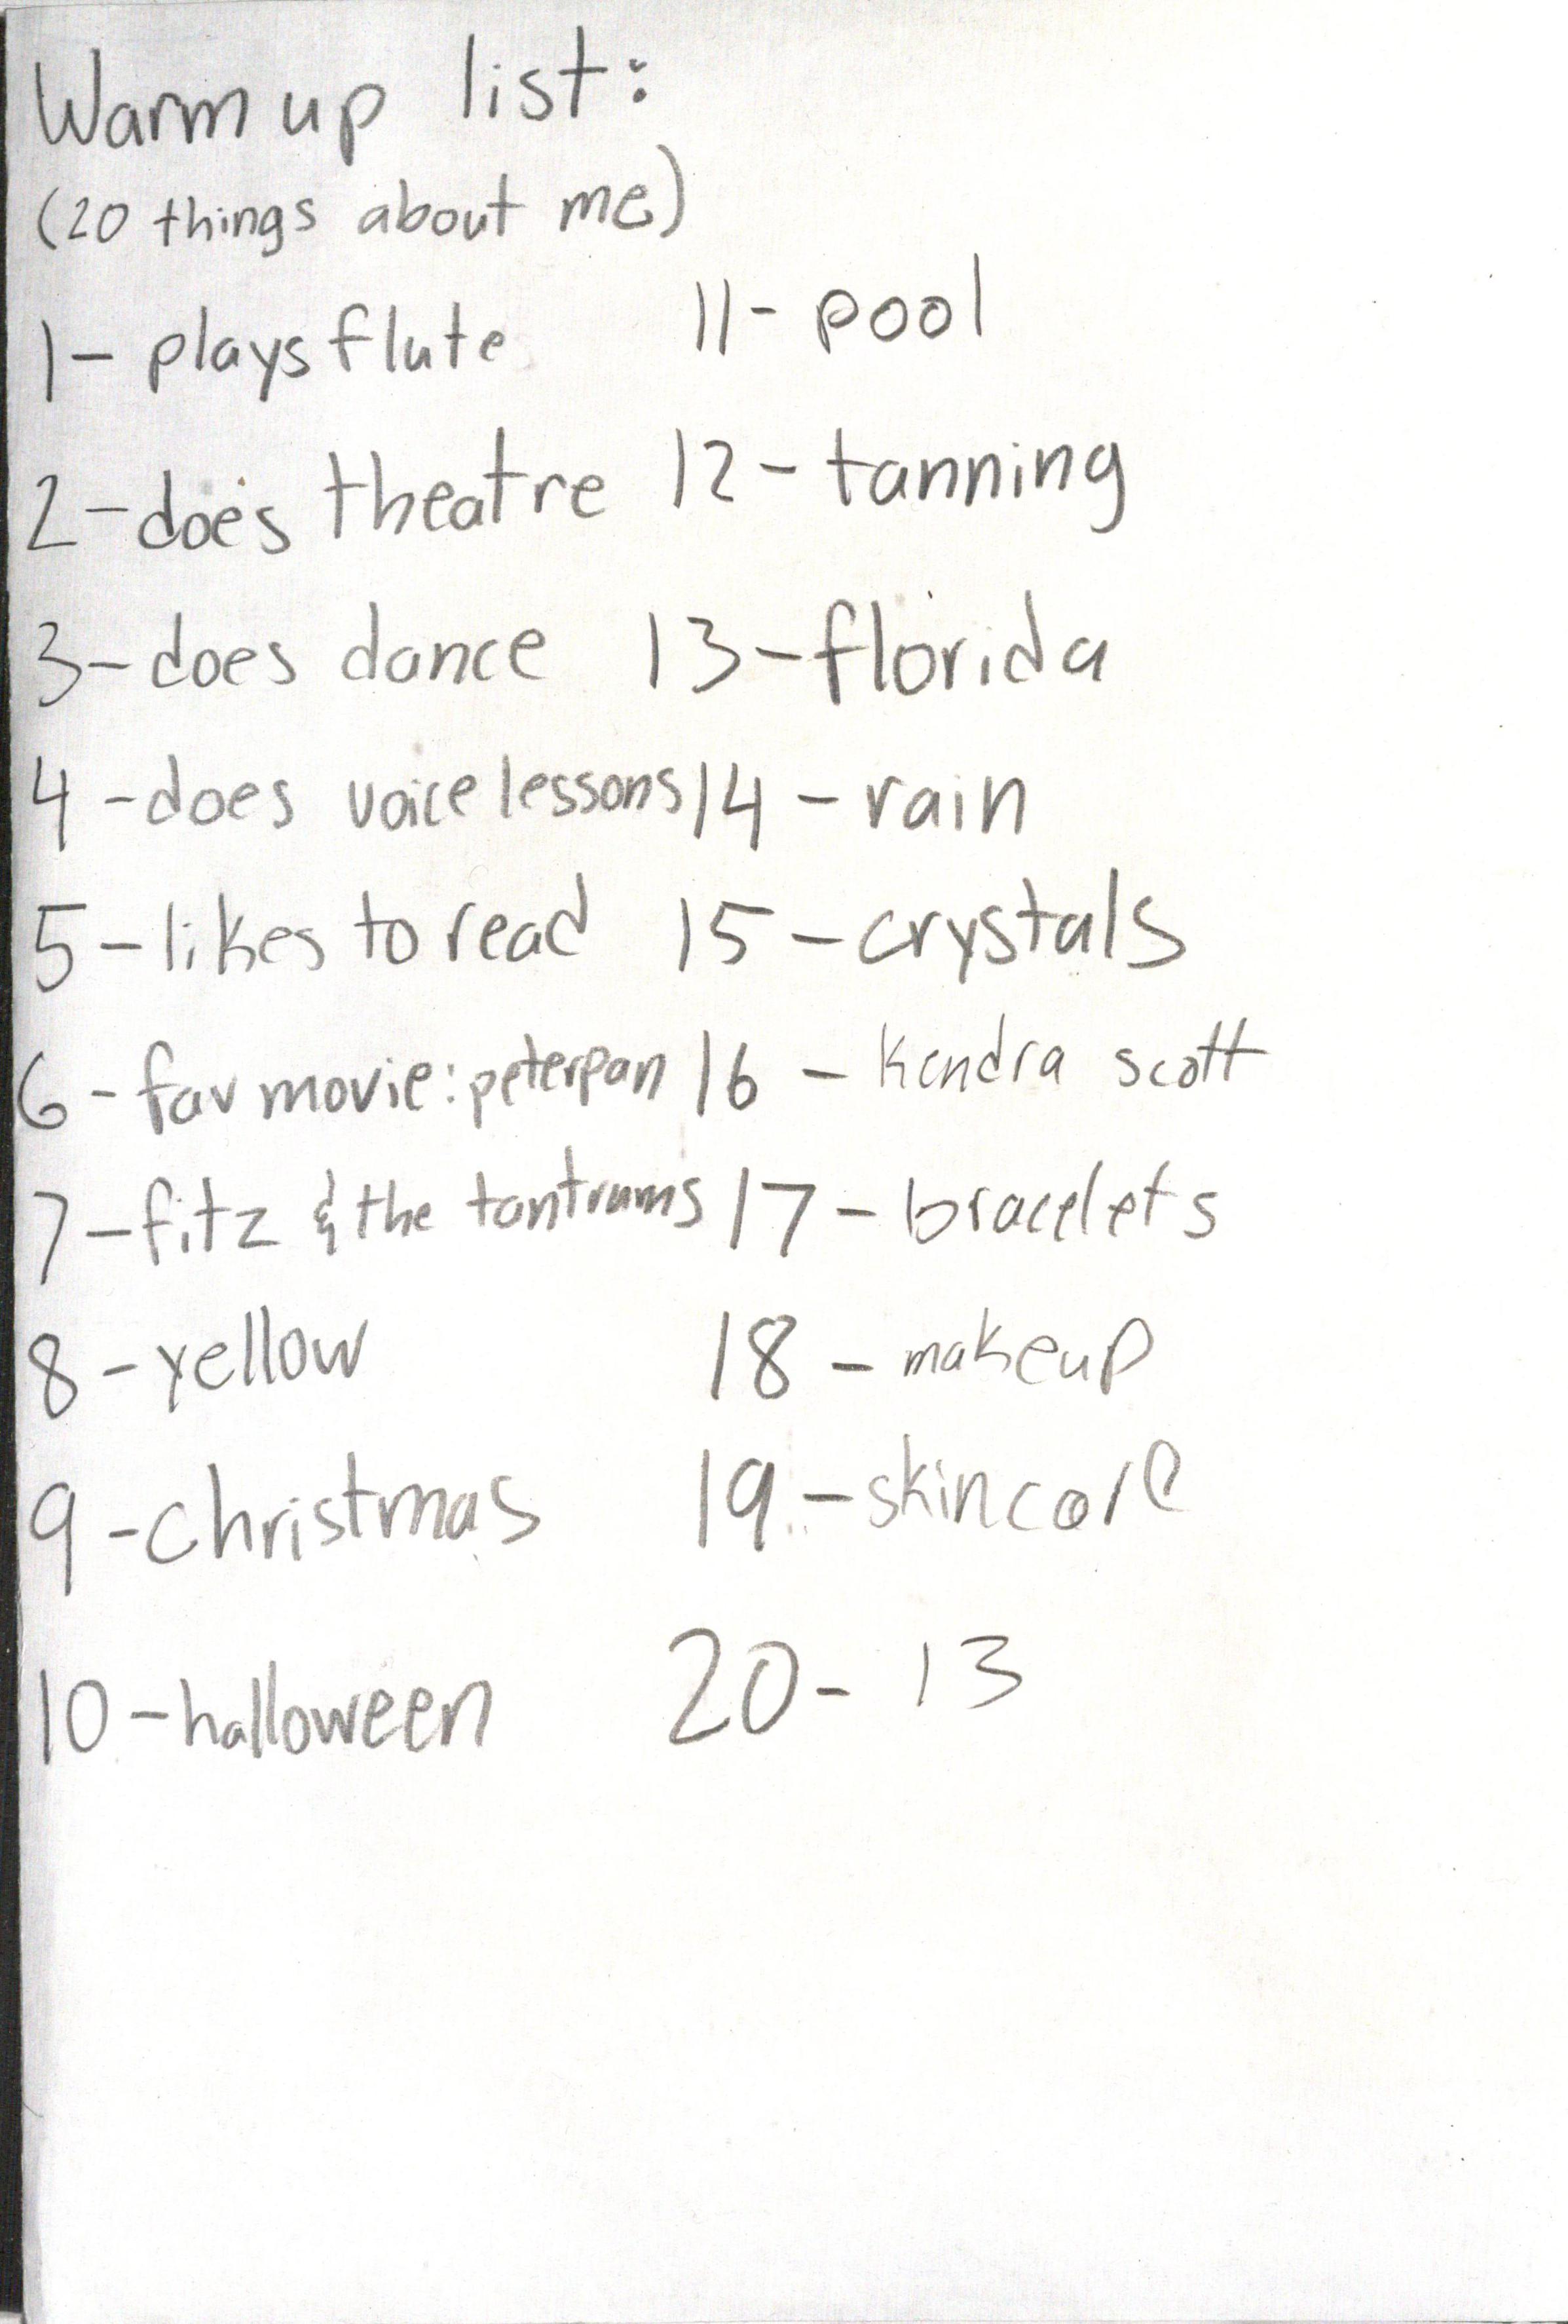 Warm up list:
(20 things about me)
1- plays flute
2-does theatre
3-does dance
4-does voice lessons
5-likes to read
6-fav movie: peterpan
7-fitz & the tantrums
8-yellow
9-christmas
10-halloween
11- pool
12-tanning
13-florida
14-rain
15-crystals
16-kendra scott
17-bracelets
18-makeup
19-skincare
20- 13